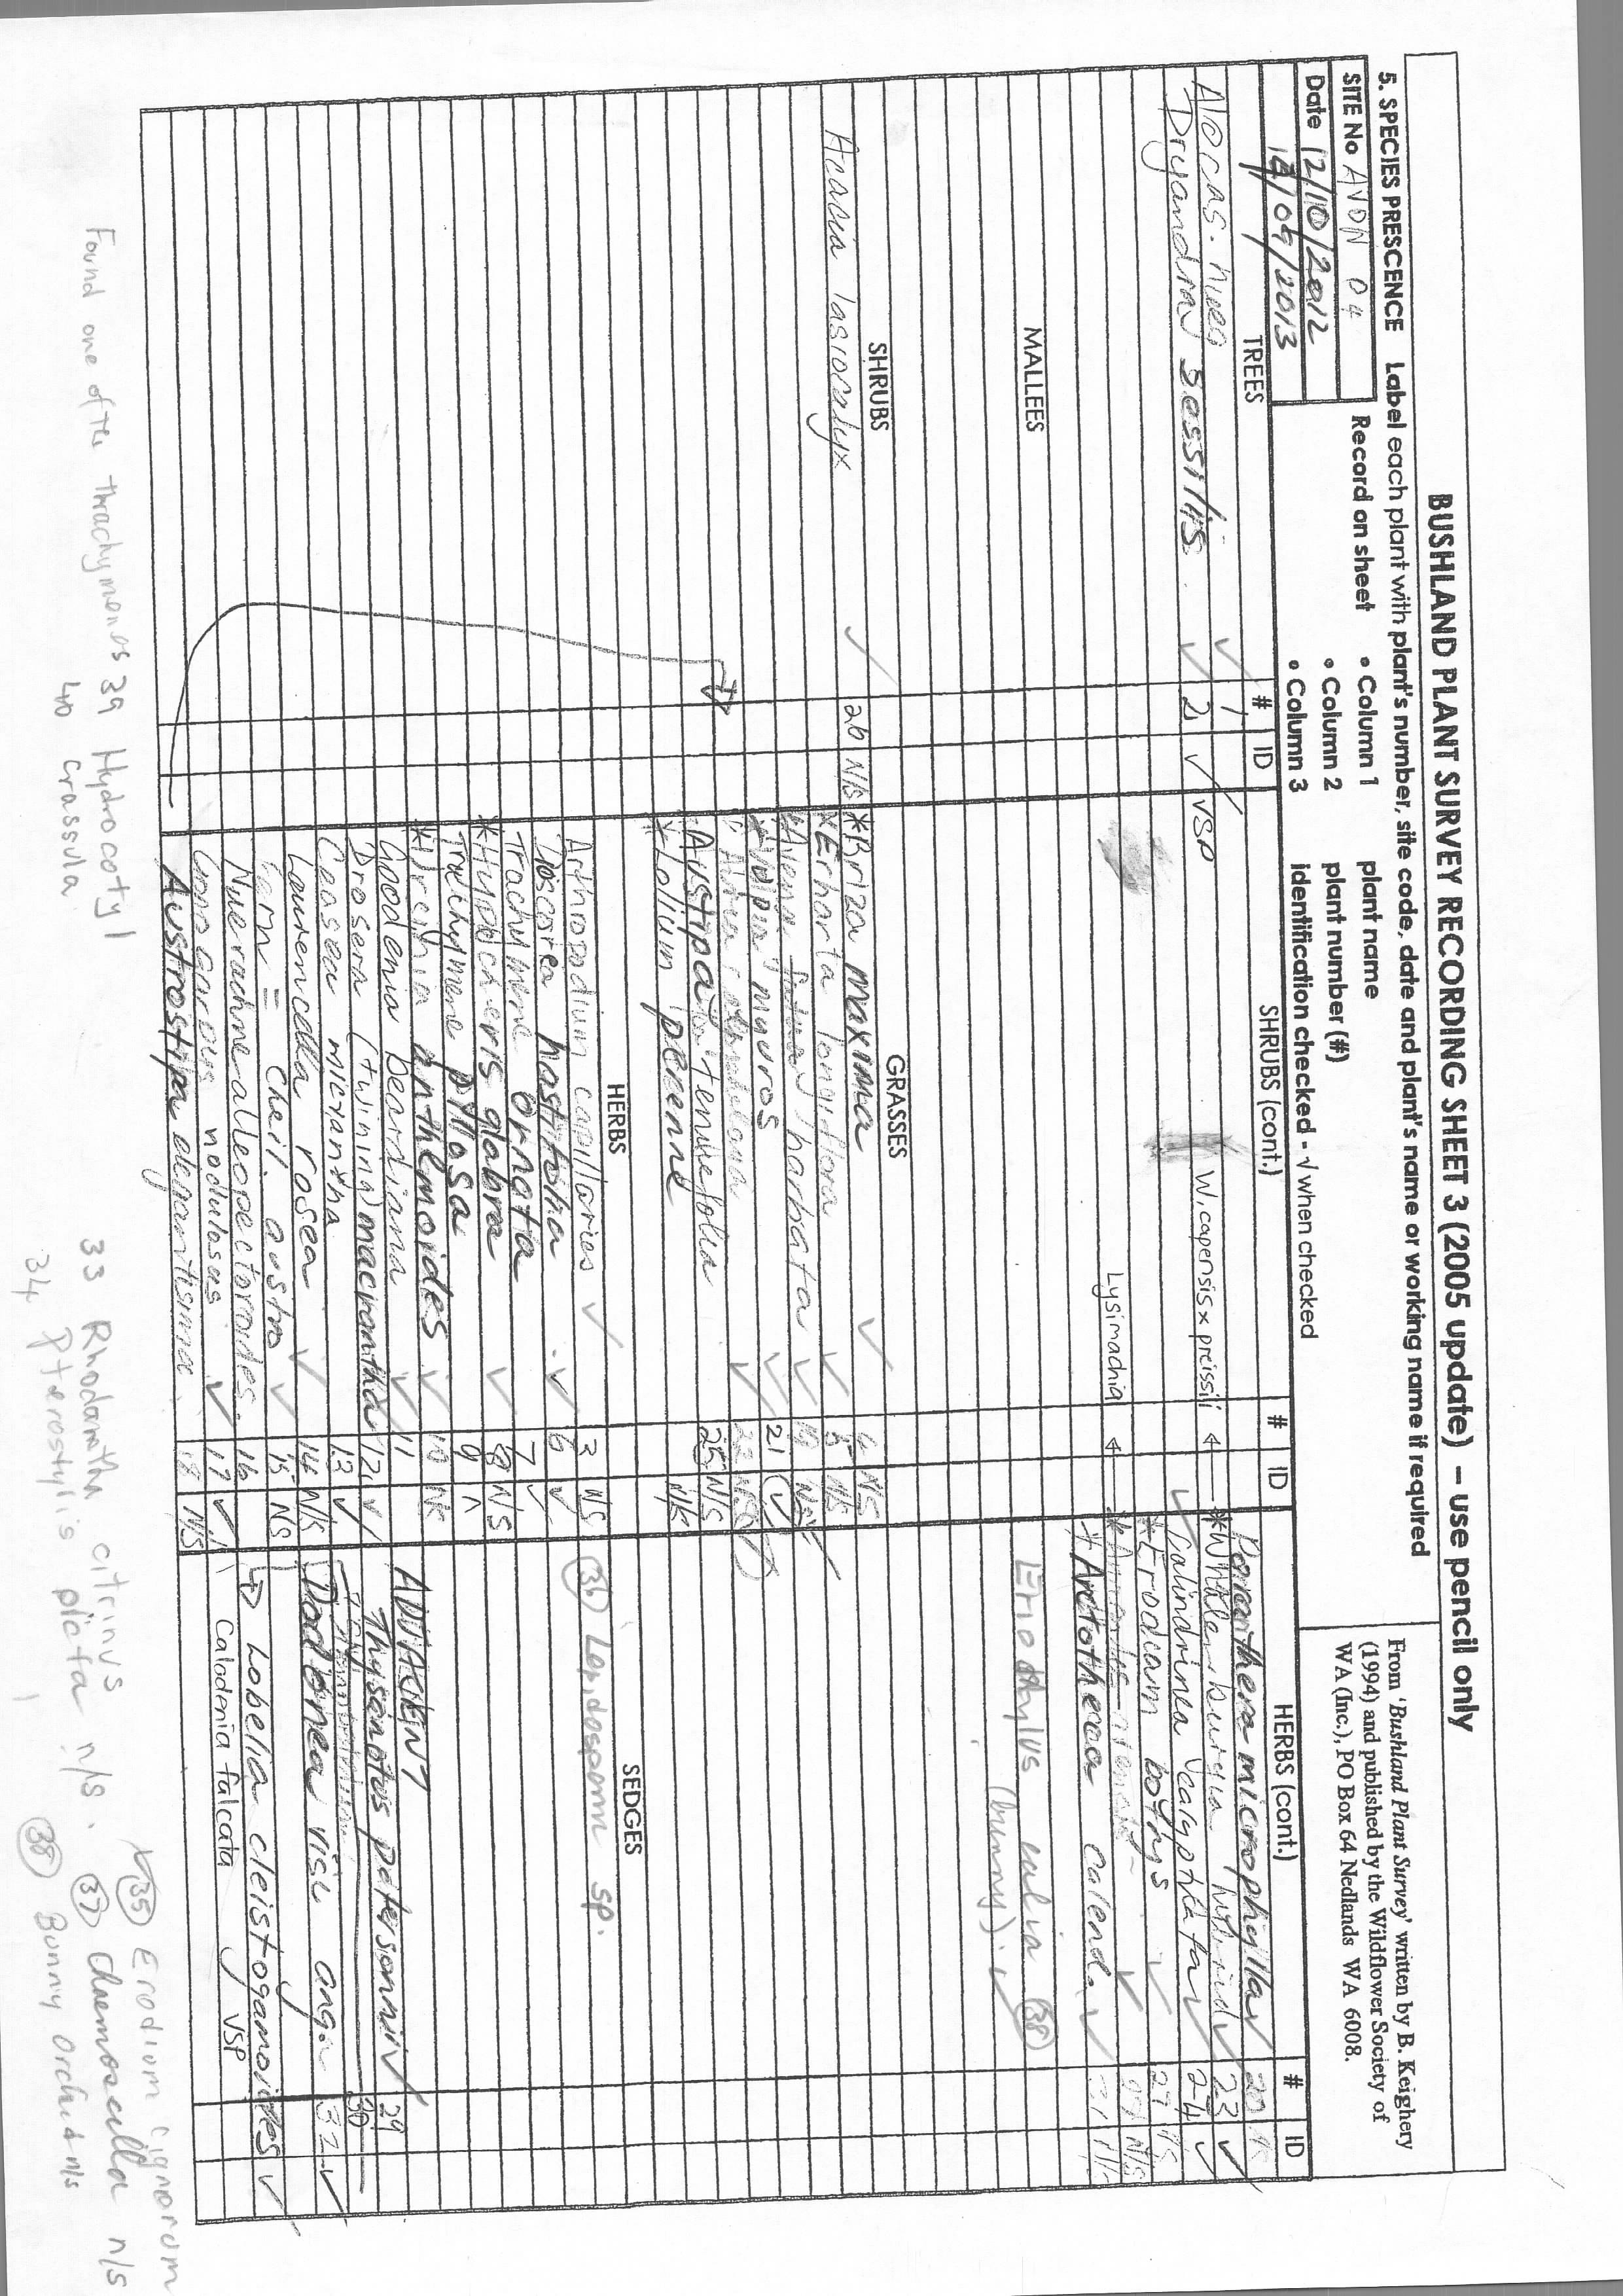 BUSHLAND PLANT SURVEY RECORDING SHEET 3 (2005 update) – use pencil only
5. SPECIES PRESCENCE Label each plant with plant's number, site code, date and plant's name or working name if required
SITE No AVON 04
Date 12/10/2012
12/09/2013
Record on sheet
• Column 1 plant name
• Column 2 plant number (#)
• Column 3 identification checked - √ when checked
From 'Bushland Plant Survey' written by B. Keighery
(1994) and published by the Wildflower Society of
WA (Inc.), PO Box 64 Nedlands WA 6008.
TREES # ID
Allocas. hueg ✓ 1
Dryandra sessilis. ✓ 2 ✓ VSP
MALLEES
SHRUBS
Acacia lasiocalyx ✓ 26 N/S
SHRUBS (cont.) # ID
W. capensis x preissii
Lysimachia
GRASSES
*Briza maxima ✓ 4 N/S
*Erharta longiflora ✓ 5 N/S
*Avena barbata ✓ 19
*Vulpia myuros ✓ 21 ✓
Austipa tenuifolia 25 N/S
*Lolium perenne N/S
HERBS
Arthropodium capillaries ✓ 3 N/S
Dioscorea hastifolia ✓ 6 ✓
Trachymene ornata 7 ✓
*Hypochaeris glabra ✓ 8 N/S
Trachymene pilosa 9
*Ursinia anthemoides ✓ 10 N/S
Goodenia beardiana ✓ 11
Drosera (twining) macrantha 12 ✓
Caesea micrantha 13 ✓
Lawrencella rosea ✓ 14 N/S
Farn = Cheil. austro ✓ 15 N/S
Nuerachne aleopectoroides. 16
nodulosus ✓ 17 ✓
Austrostipa elegantisima. 18 N/S
HERBS (cont.) # ID
Poranthera microphylla ✓ 20
*Whalenburgia hybrid ✓ 23 ✓
Calindrinea calyptrata ✓ 24 ✓
*Erodium botrys ✓ 27 N/S
*Arctotheca calend. ✓ 31 N/S
Eriochylus (38)
(bunny). ✓
SEDGES
(36) Lepidosperm sp.
Thysanotus patersonni ✓ 29
30
Dodonea visc ang. 32 ✓
→ Lobelia cleistogamoides ✓
Caladenia falcata VSP
Found one of the trachymenes 39 Hydrocotyl
40 crassula
33 Rhodanthe citrinus n/s.
34 Pterostylis picta n/s
*(35) Erodium cignorum
(37) Chamoscilla n/s
(38) Bunny orchid n/s